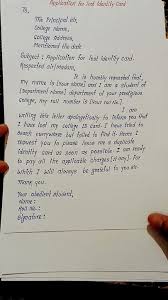 Application for lost Identity Card
To,
The Principal sir,
College name,
College Address,
Mentioned the date
Subject: Application for lost Identity Card.
Respected sir/madam,
It is honestly requested that,
my name is [Your name] and I am a student of
[Department name] department of your prestigious
college, my roll number is [Your no.]. I am
writing this letter apologetically to inform you that
I have lost my college ID card. I have tried to
search everywhere but failed to find it. Hence I
request you to please issue me a duplicate
identity card as soon as possible. I am ready
to pay all the applicable charges [if any]. For
which I will always be grateful to you sir.
Thank you.
Your obedient student,
name:
Roll no:
Signature: